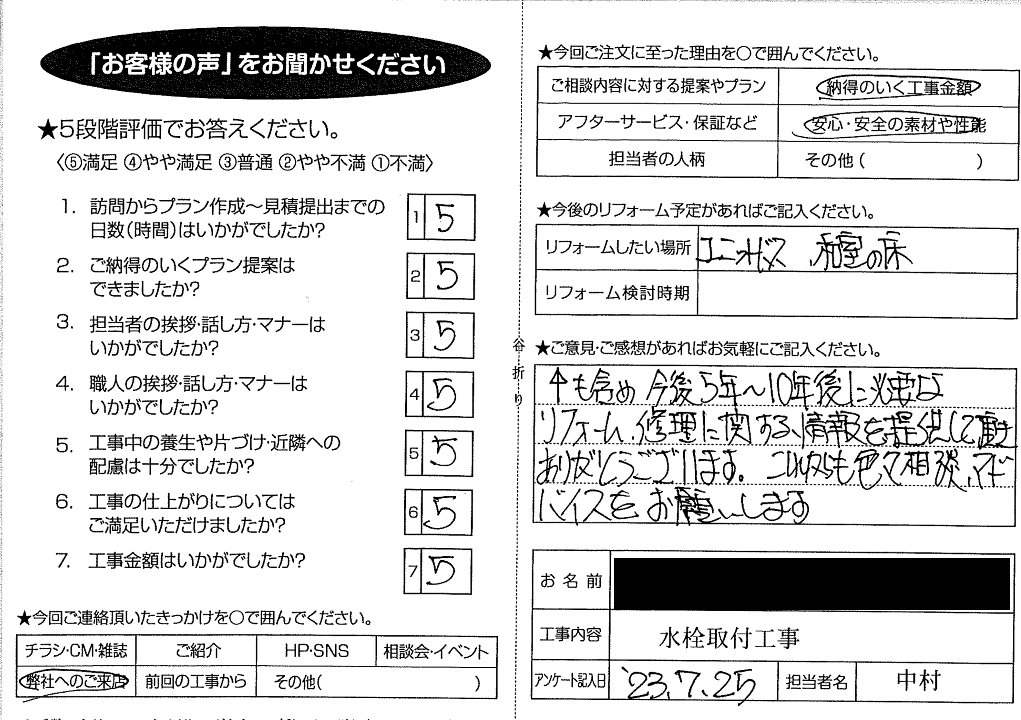 「お客様の声」をお聞かせください
★5段階評価でお答えください。
〈⑤満足 ④やや満足 ③普通 ②やや不満 ①不満〉
1. 訪問からプラン作成～見積提出までの
日数(時間)はいかがでしたか? 1 5
2. ご納得のいくプラン提案は
できましたか? 2 5
3. 担当者の挨拶・話し方・マナーは
いかがでしたか? 3 5
4. 職人の挨拶・話し方・マナーは
いかがでしたか? 4 5
5. 工事中の養生や片づけ・近隣への
配慮は十分でしたか? 5 5
6. 工事の仕上がりについては
ご満足いただけましたか? 6 5
7. 工事金額はいかがでしたか? 7 5
★今回ご連絡頂いたきっかけを○で囲んでください。
チラシ・CM・雑誌 ご紹介 HP・SNS 相談会・イベント
弊社へのご来店 前回の工事から その他( )
谷折り
★今回ご注文に至った理由を○で囲んでください。
ご相談内容に対する提案やプラン 納得のいく工事金額
アフターサービス・保証など 安心・安全の素材や性能
担当者の人柄 その他( )
★今後のリフォーム予定があればご記入ください。
リフォームしたい場所 ユニットバス 和室の床
リフォーム検討時期
★ご意見・ご感想があればお気軽にご記入ください。
↑も含め 今後5年～10年後に必要な
リフォーム、修理に関する、情報を提供して頂き
ありがとうございます。これからも色々相談、アド
バイスをお願いします
お名前
工事内容 水栓取付工事
アンケート記入日 '23.7.25 担当者名 中村